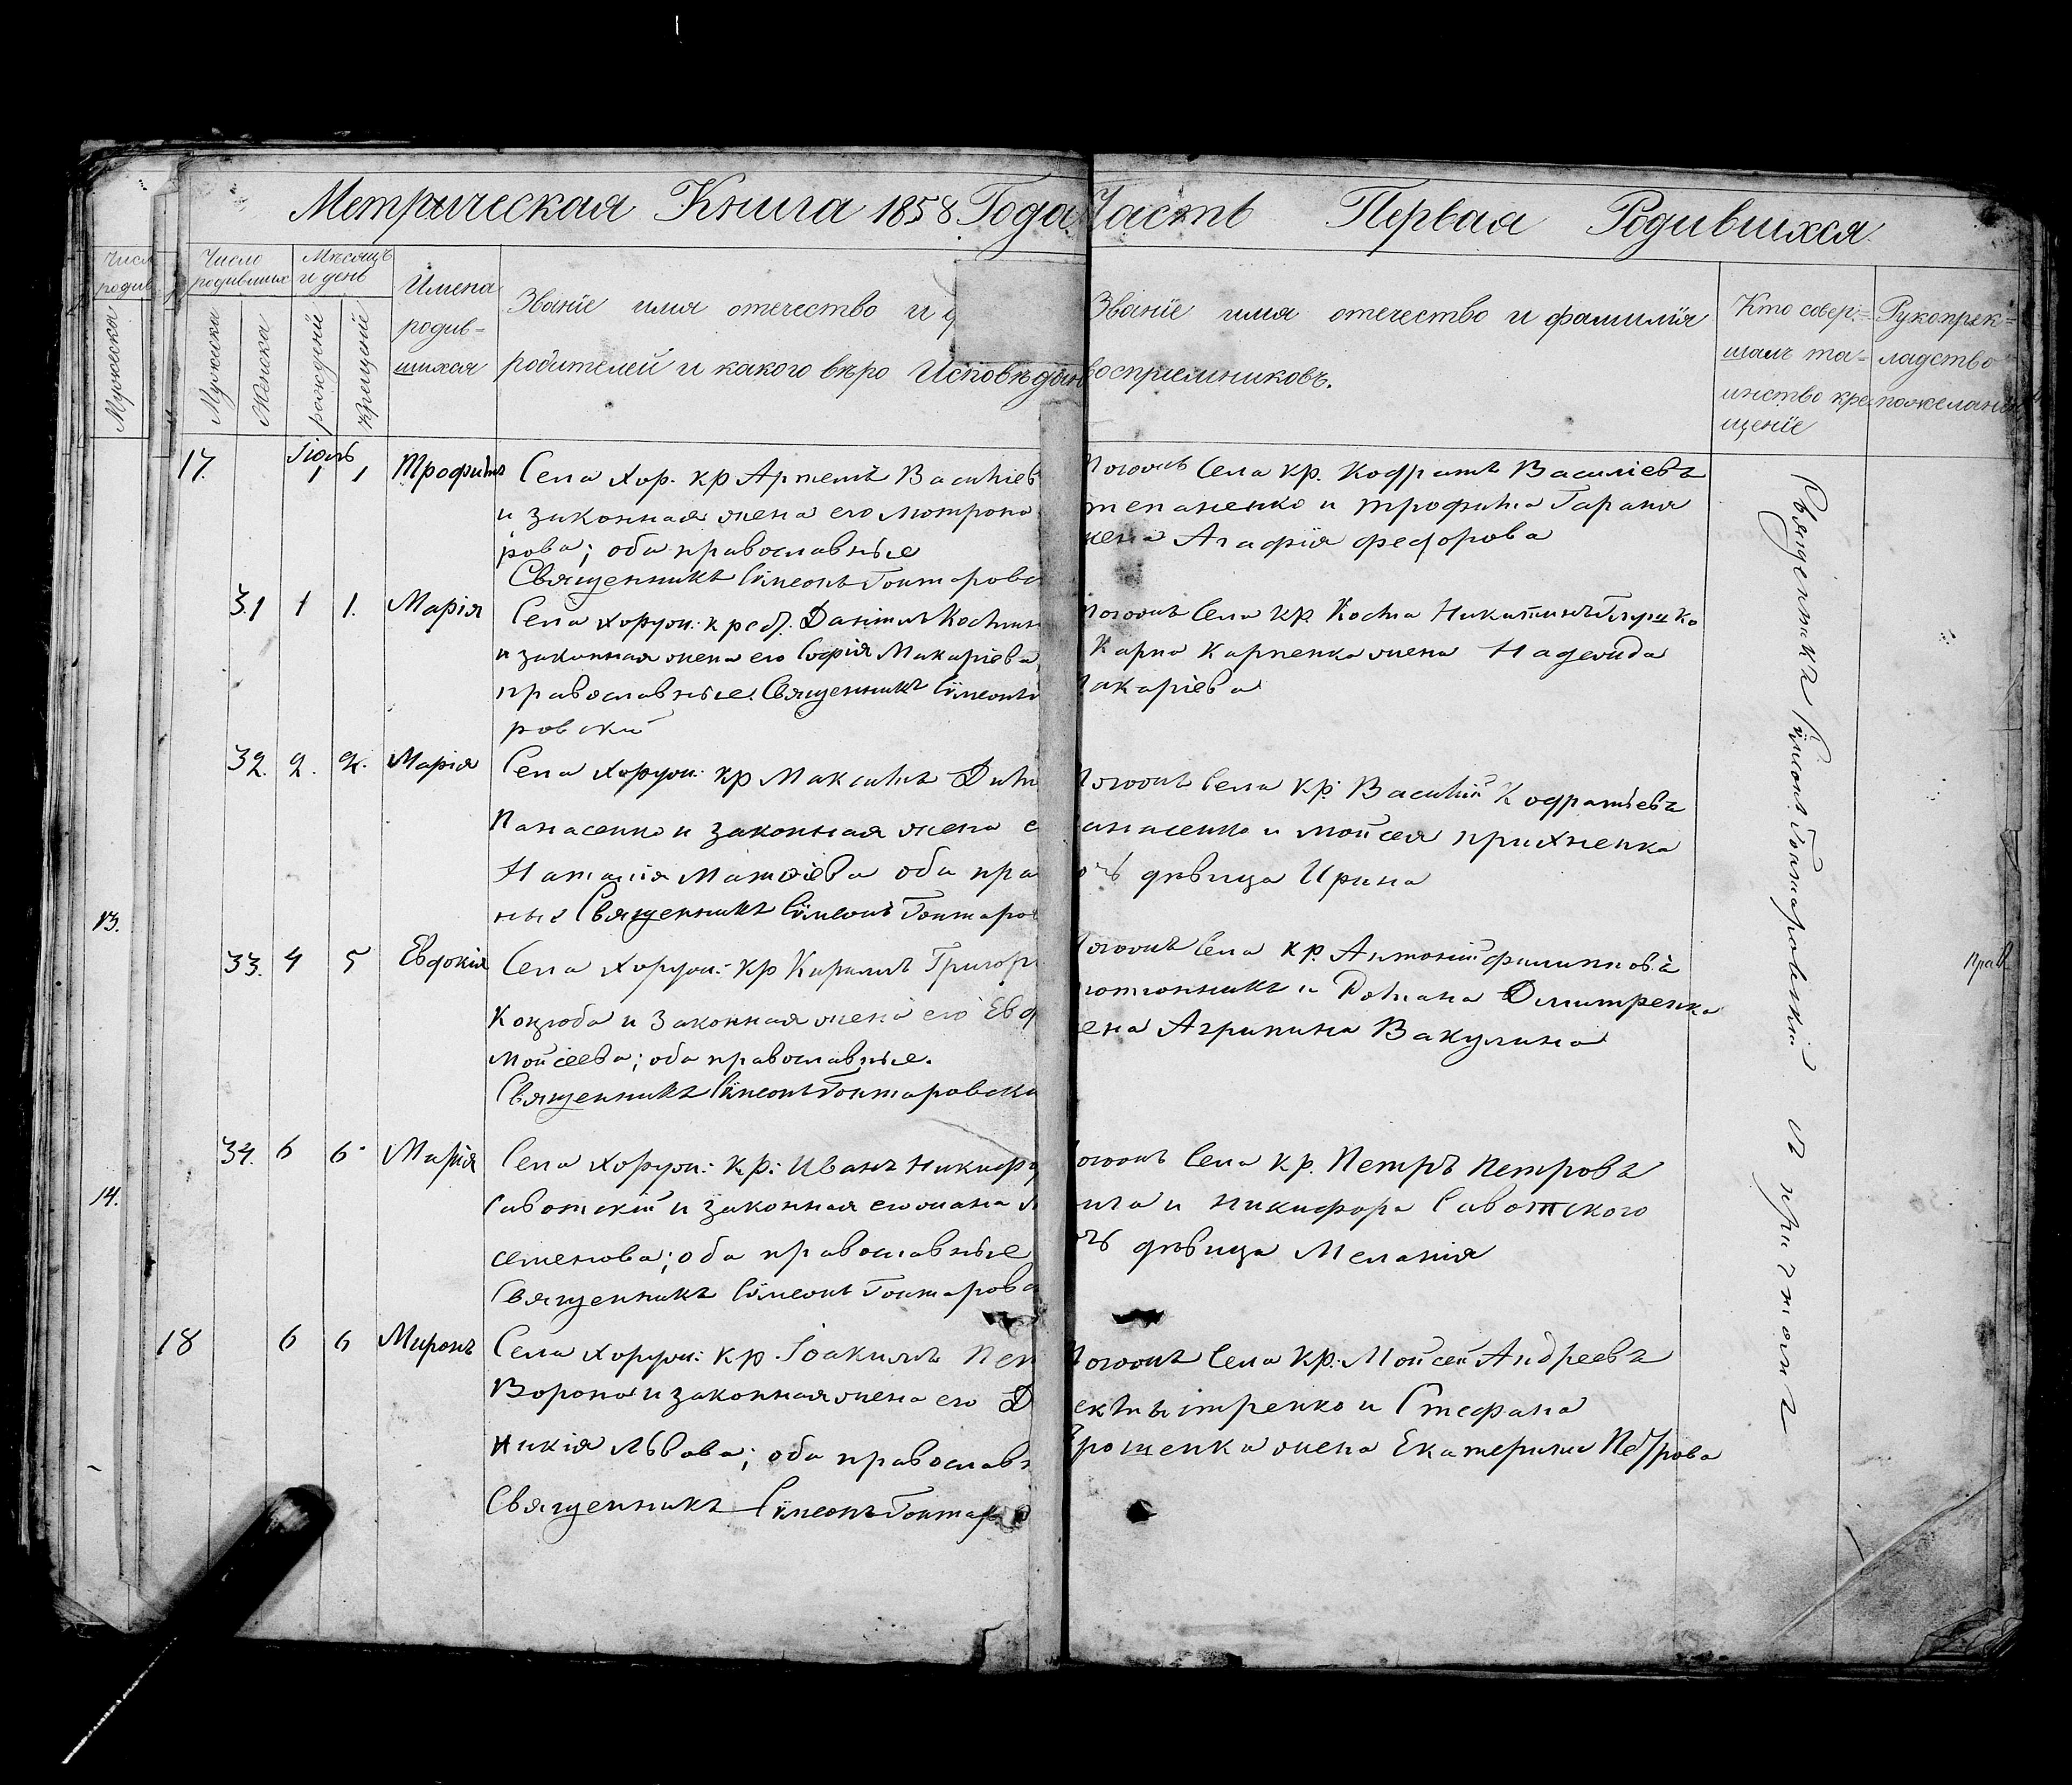 Метрическая Книга 1858 Года Часть Первая Родившихся.
Числ
родив
Мужеска
Число
родившихся
Мужеска
Женска
Мѣсяцъ
и день
рожденій
Крещеніе
Имена
родив-
шихся
Званіе имя отечество и
родителей и какого вѣро Исповѣдан
Званіе имя отечество и фамилія
воспріемниковъ.
Кто совер-
шалъ та-
инство кре-
щеніе
Рукоприк-
ладство
пожеланію
17. Іюль 1 1 Трофимъ
Села Хор. кр Артемъ Василіев
и законная жена его Мотрона
рова; оба православные
Священникъ Сѵмеонъ Гонтаровс
Тогожъ Села кр. Кодратъ Василіевъ
тепаненко и трофима Гараня
жена Агафія федорова
31 1 1. Марія
Села Хоружи: кр Даніилъ Косми
и законная жена его Софія Макаріева
православные. Священникъ Сѵмеонъ
ровскій
тогожъ Села кр. Косма Никитинъ Глушко
Карпа Карпенка жена Надежда
Макаріева
32. 2. 2. Марія
Села Хоружи: кр Максимъ Дим
Панасенко и законная жена е
Наталія Матвіева оба пра
ные Священникъ Сѵмеонъ Гонтаров
Тогожъ Села кр: Василій Кодратьевъ
анасенко и Мойсея прихненка
очь дѣвица Ирина
13.
33. 4 5 Евдокія
Села Хоружи: кр Кирилъ Григорі
Коцюба и Законная жена его Евд
Мойсеева; оба православные.
Священникъ Сѵмеонъ Гонтаровски
тогожъ Села кр. Антоній филипповъ
и Романа Дмитренка
жена Агрипина Вакулина
прав
34. 6 6. Марія
Села Хоружи: кр: Иванъ Никифо
Савотскій и законная его жана
семенова; оба православные
Священникъ Сѵмеонъ Гонтаровс
тогожъ Села кр. Петръ Петровъ
и никифора Савотского
очь дѣвица Меланія
14.
18 6 6 Миронъ
Села Хоружи: кр. Іоакимъ Пет
Ворона и законная жена его Д
никія Львова; оба православн
Священникъ Сѵмеонъ Гонтар
Тогожъ Села кр. Мойсей Андреевъ
и Стефана
ярошенка жена Екатерина Петрова
Священникъ Сѵмеонъ Гонтаровскій съ причтомъ